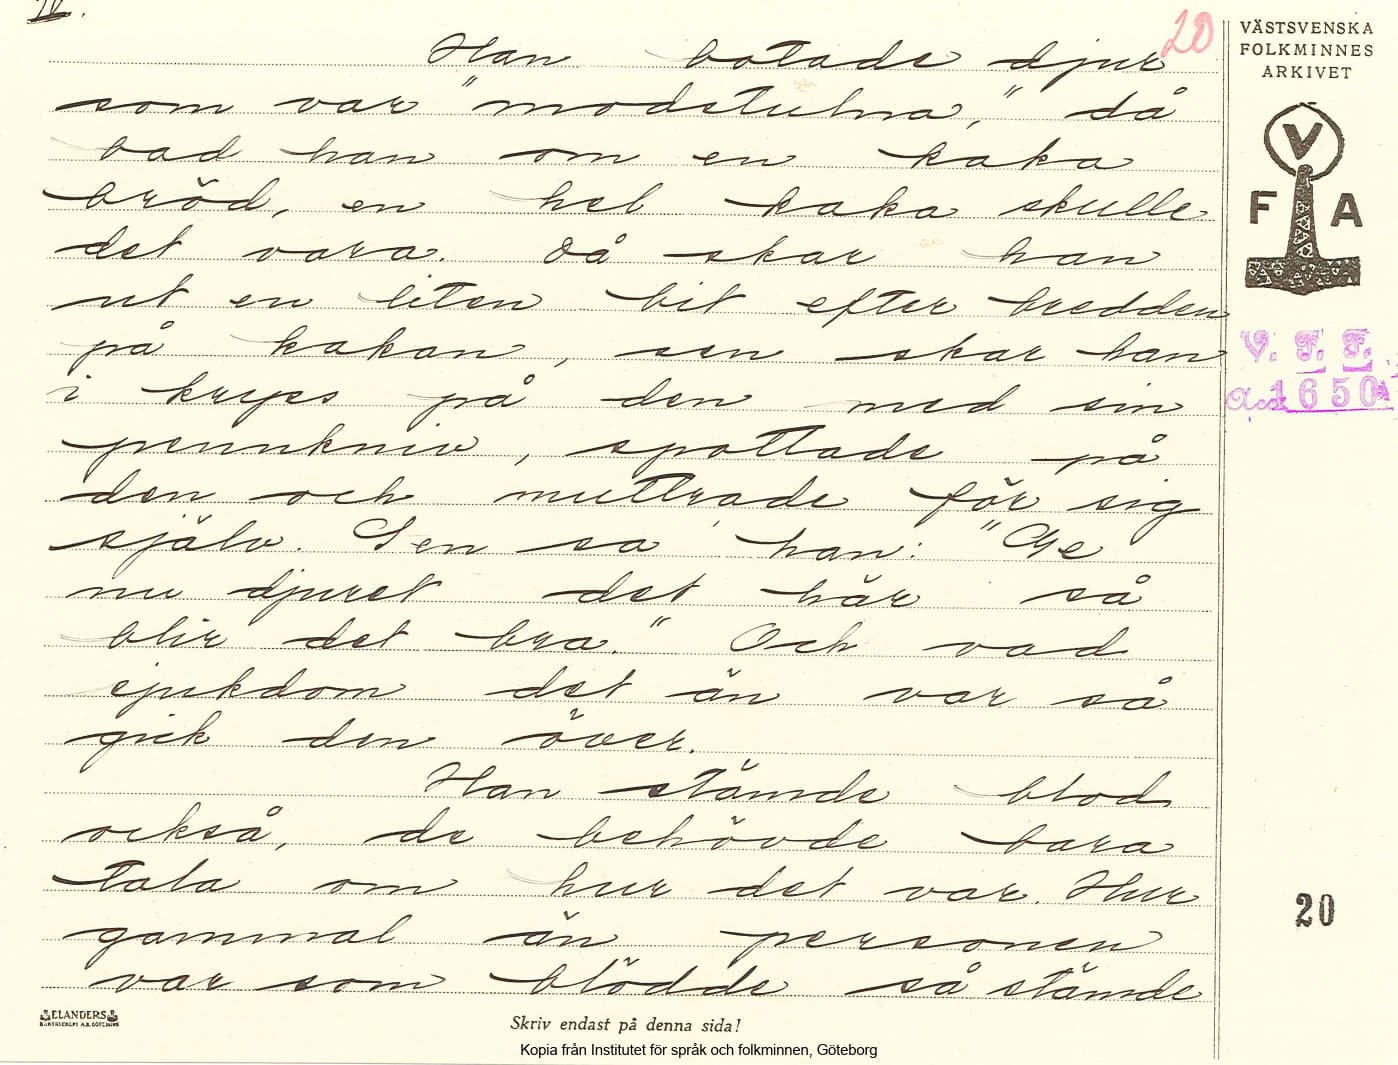 IV.
20
Han botade djur
som var "modstulna," då
bad han om en kaka
bröd, en hel kaka skulle
det vara. Då skar han
ut en liten bit efter bredden
på kakan, sen skar han
i kryss på den med sin
pennkniv, spottade på
den och muttrade för sig
själv. Sen sa han: "Ge
nu djuret det här så
blir det bra." Och vad
sjukdom det än var så
gick den över.
Han stämde blod
också, de behövde bara
tala om hur det var. Hur
gammal än personen
var som blödde så stämde
VÄSTSVENSKA
FOLKMINNES
ARKIVET
V
F A
V. F. F.
Acc. 1650
20
ELANDERS
BOKTRYCKERI A.B. GÖTEBORG
Skriv endast på denna sida!
Kopia från Institutet för språk och folkminnen, Göteborg